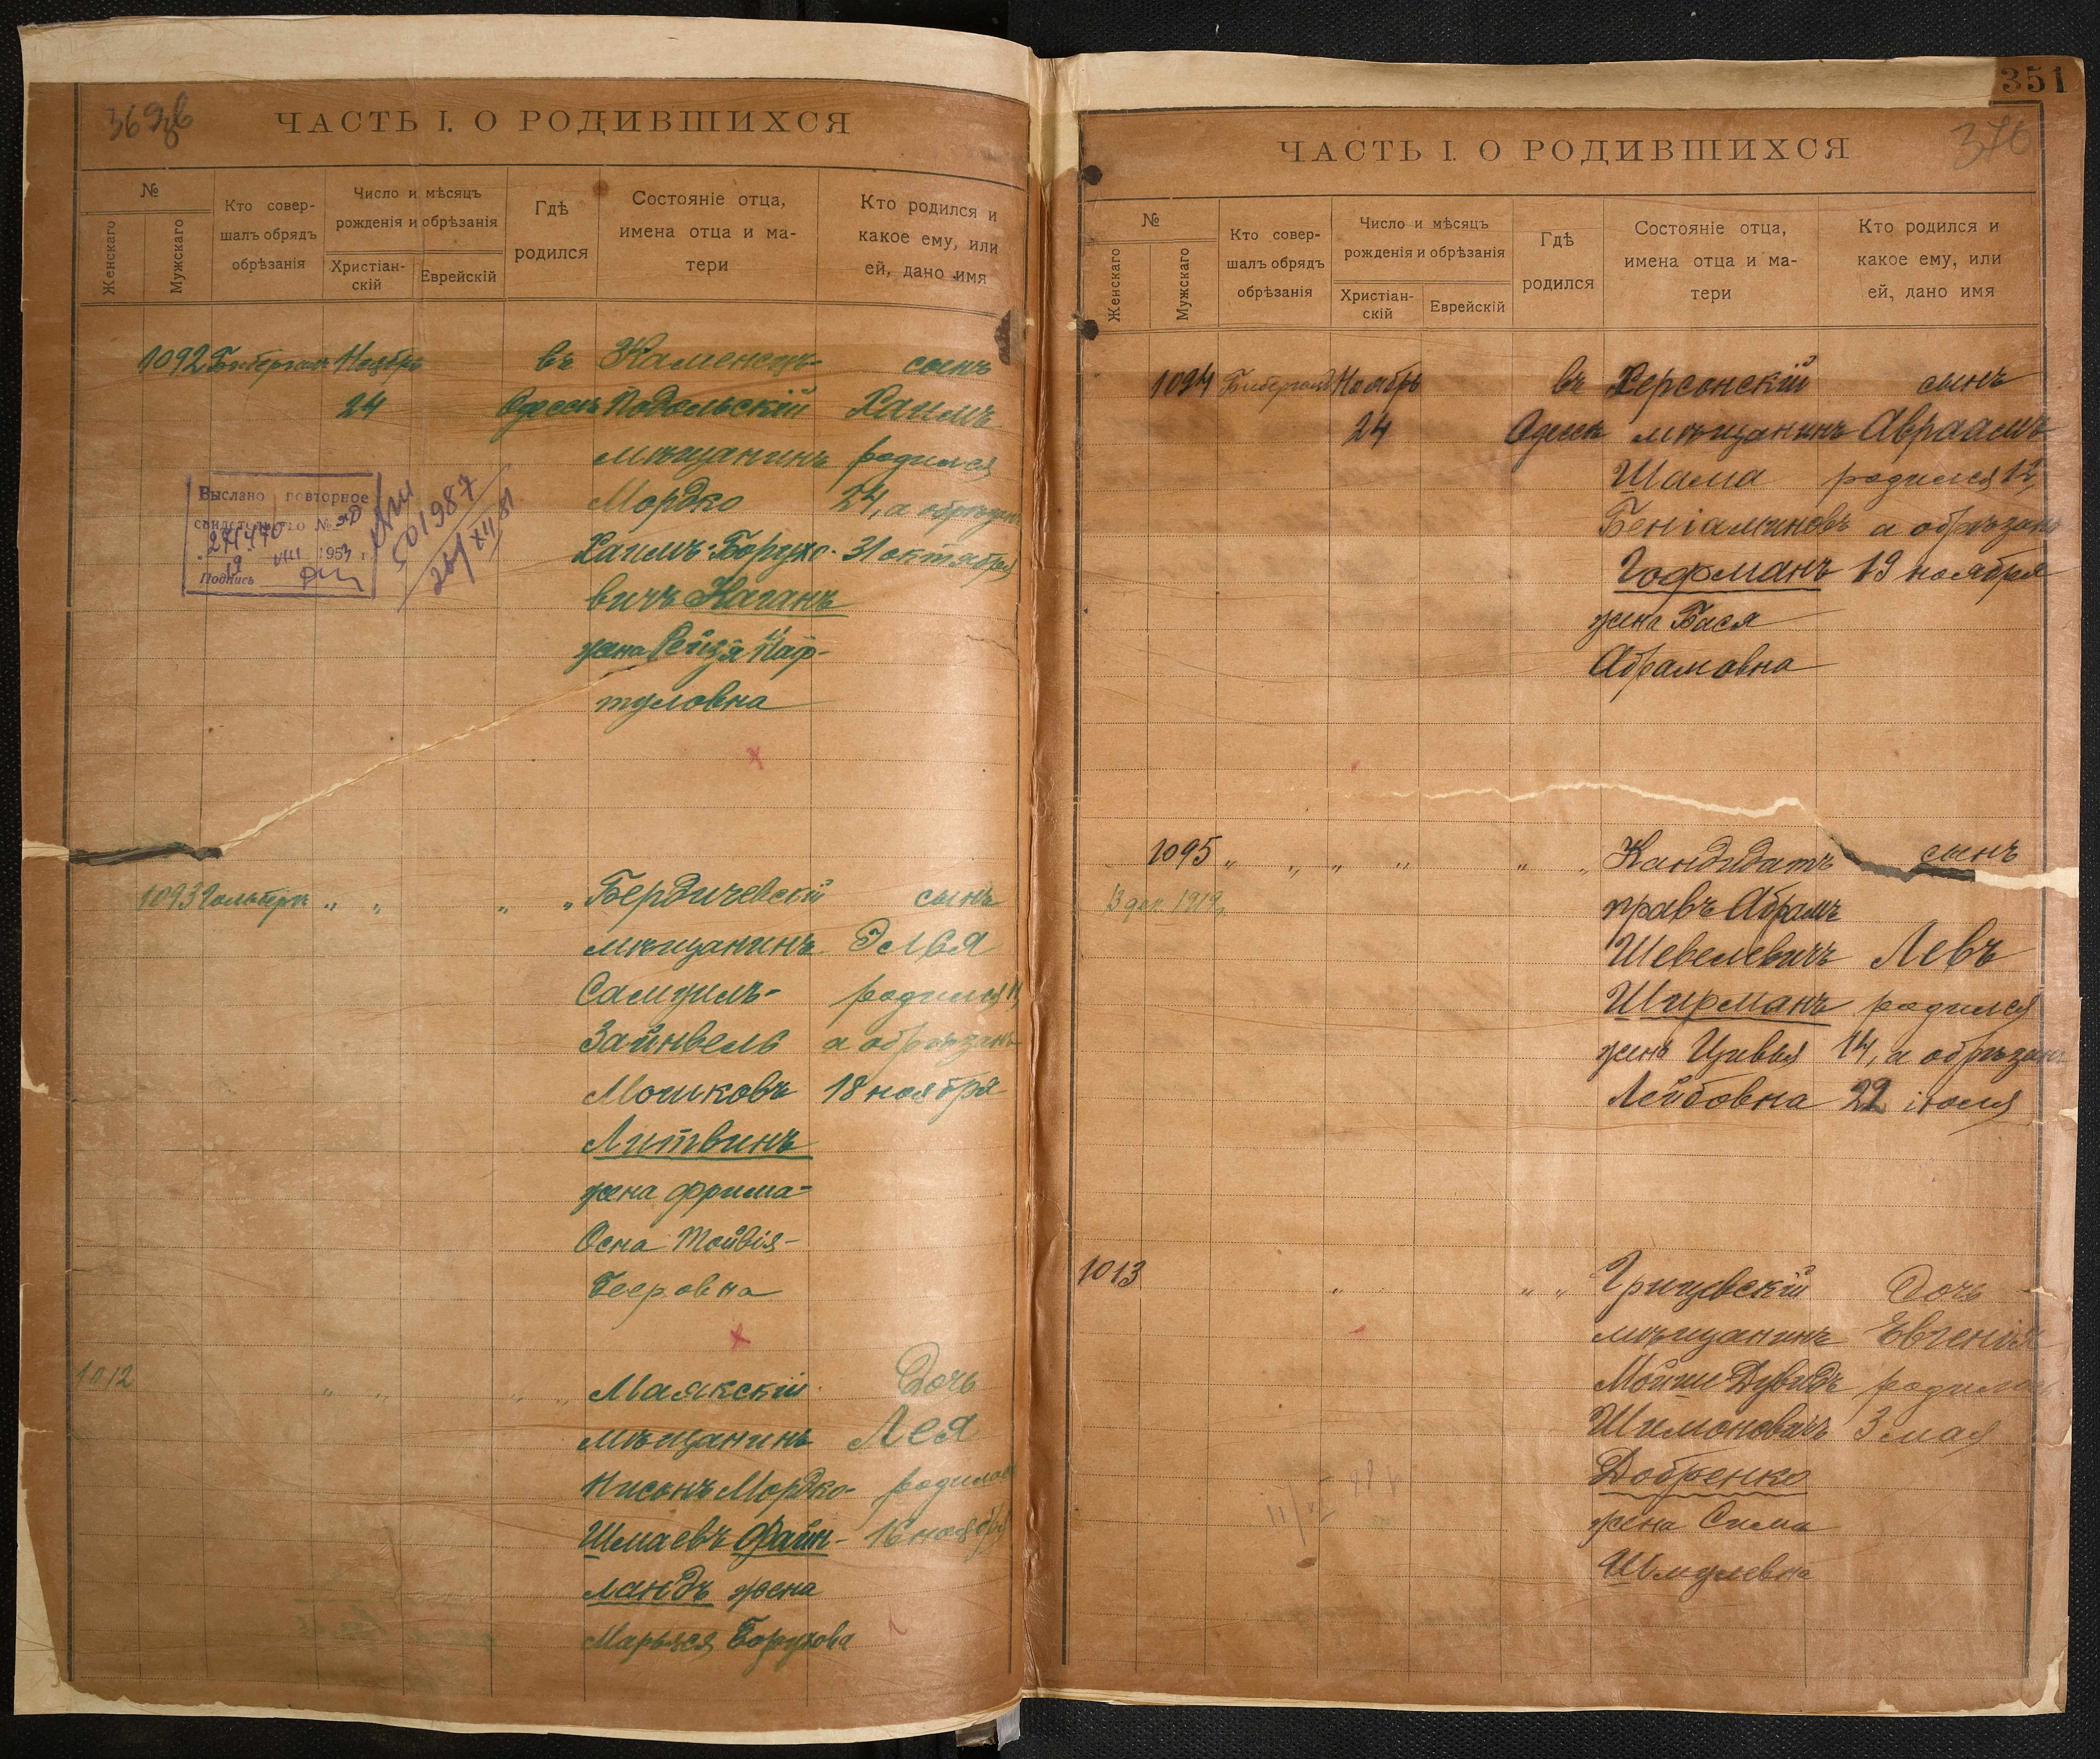 ЧАСТЬ I. О РОДИВШИХСЯ
№
Женскаго
Мужскаго
Кто совер-
шалъ обрядъ
обрѣзанія
Число и мѣсяцъ
рожденія и обрѣзанія
Христіан-
скій
Еврейскій
Гдѣ
родился
Состояніе отца,
имена отца и ма-
тери
Кто родился и
какое ему, или
ей, дано имя
1092 Ноябрь въ Каменецъ- сынъ
24 Одессѣ Подольскій Хаимъ
мѣщанинъ родился
Мордко 24, а обрѣзанъ
Хаимъ Борухо- 31 октября
вичъ Каганъ
жена Рейзя Наф-
туловна
Выслано повторное
свидетельство №
271440
19 VIII 1953 г.
Подпись
501987
24/XII 81
1093 Гольбергъ „ „ „ „ Бердичевскій сынъ
мѣщанинъ Элья
Самуилъ- родился 11,
Зайнвель а обрѣзанъ
Мошковъ 18 ноября
Литвинъ
жена Фрима-
Осна Тойвія-
Бееровна
1012 „ „ „ „ Маякскій Дочь
мѣщанинъ Лея
Нисонъ Мордко- родилась
Шмаевъ Файн- 16 ноября
ландъ жена
Марьяся Борухова
351
376
ЧАСТЬ I. О РОДИВШИХСЯ
№
Женскаго
Мужскаго
Кто совер-
шалъ обрядъ
обрѣзанія
Число и мѣсяцъ
рожденія и обрѣзанія
Христіан-
скій
Еврейскій
Гдѣ
родился
Состояніе отца,
имена отца и ма-
тери
Кто родился и
какое ему, или
ей, дано имя
1094 Ноябрь въ Херсонскій сынъ
24 Одессѣ мѣщанинъ Авраамъ
Шама родился 12,
Беніаминовъ а обрѣзанъ
Гофманъ 19 ноября
жена Бася
Абрамовна
1095 „ „ „ „ „ „ Кандидатъ сынъ
13 дек. 1919, правъ Абрамъ
Шевелевичъ Левъ
Ширманъ родился
жена Цивья 14, а обрѣзанъ
Лейбовна 22 іюля
1013 „ „ „ Грицевскій Дочь
мѣщанинъ Евгенія
Мойше Дувидъ родилась
Шимоновичъ 3 мая
Добренко
жена Сима
Шмулевна